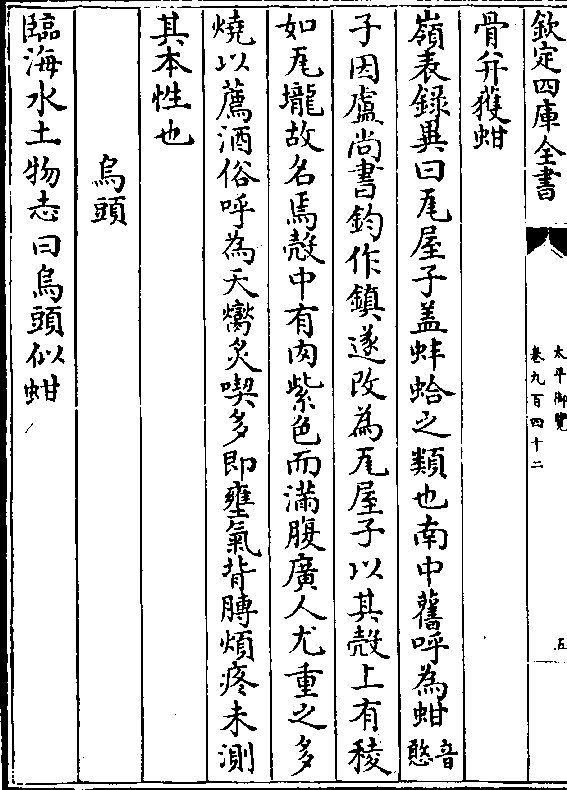 欽定四庫全書
太平御覽
卷九百四十二
五
骨并獲蚶
嶺表錄異曰瓦屋子盖蚌蛤之類也南中舊呼為蚶音憨
子因盧尚書鈞作鎮遂改為瓦屋子以其殻上有稜
如瓦壠故名焉殻中有肉紫色而滿腹廣人尤重之多
燒以薦酒俗呼為天臠炙喫多即壅氣背膊煩疼未測
其本性也
烏頭
臨海水土物志曰烏頭似蚶